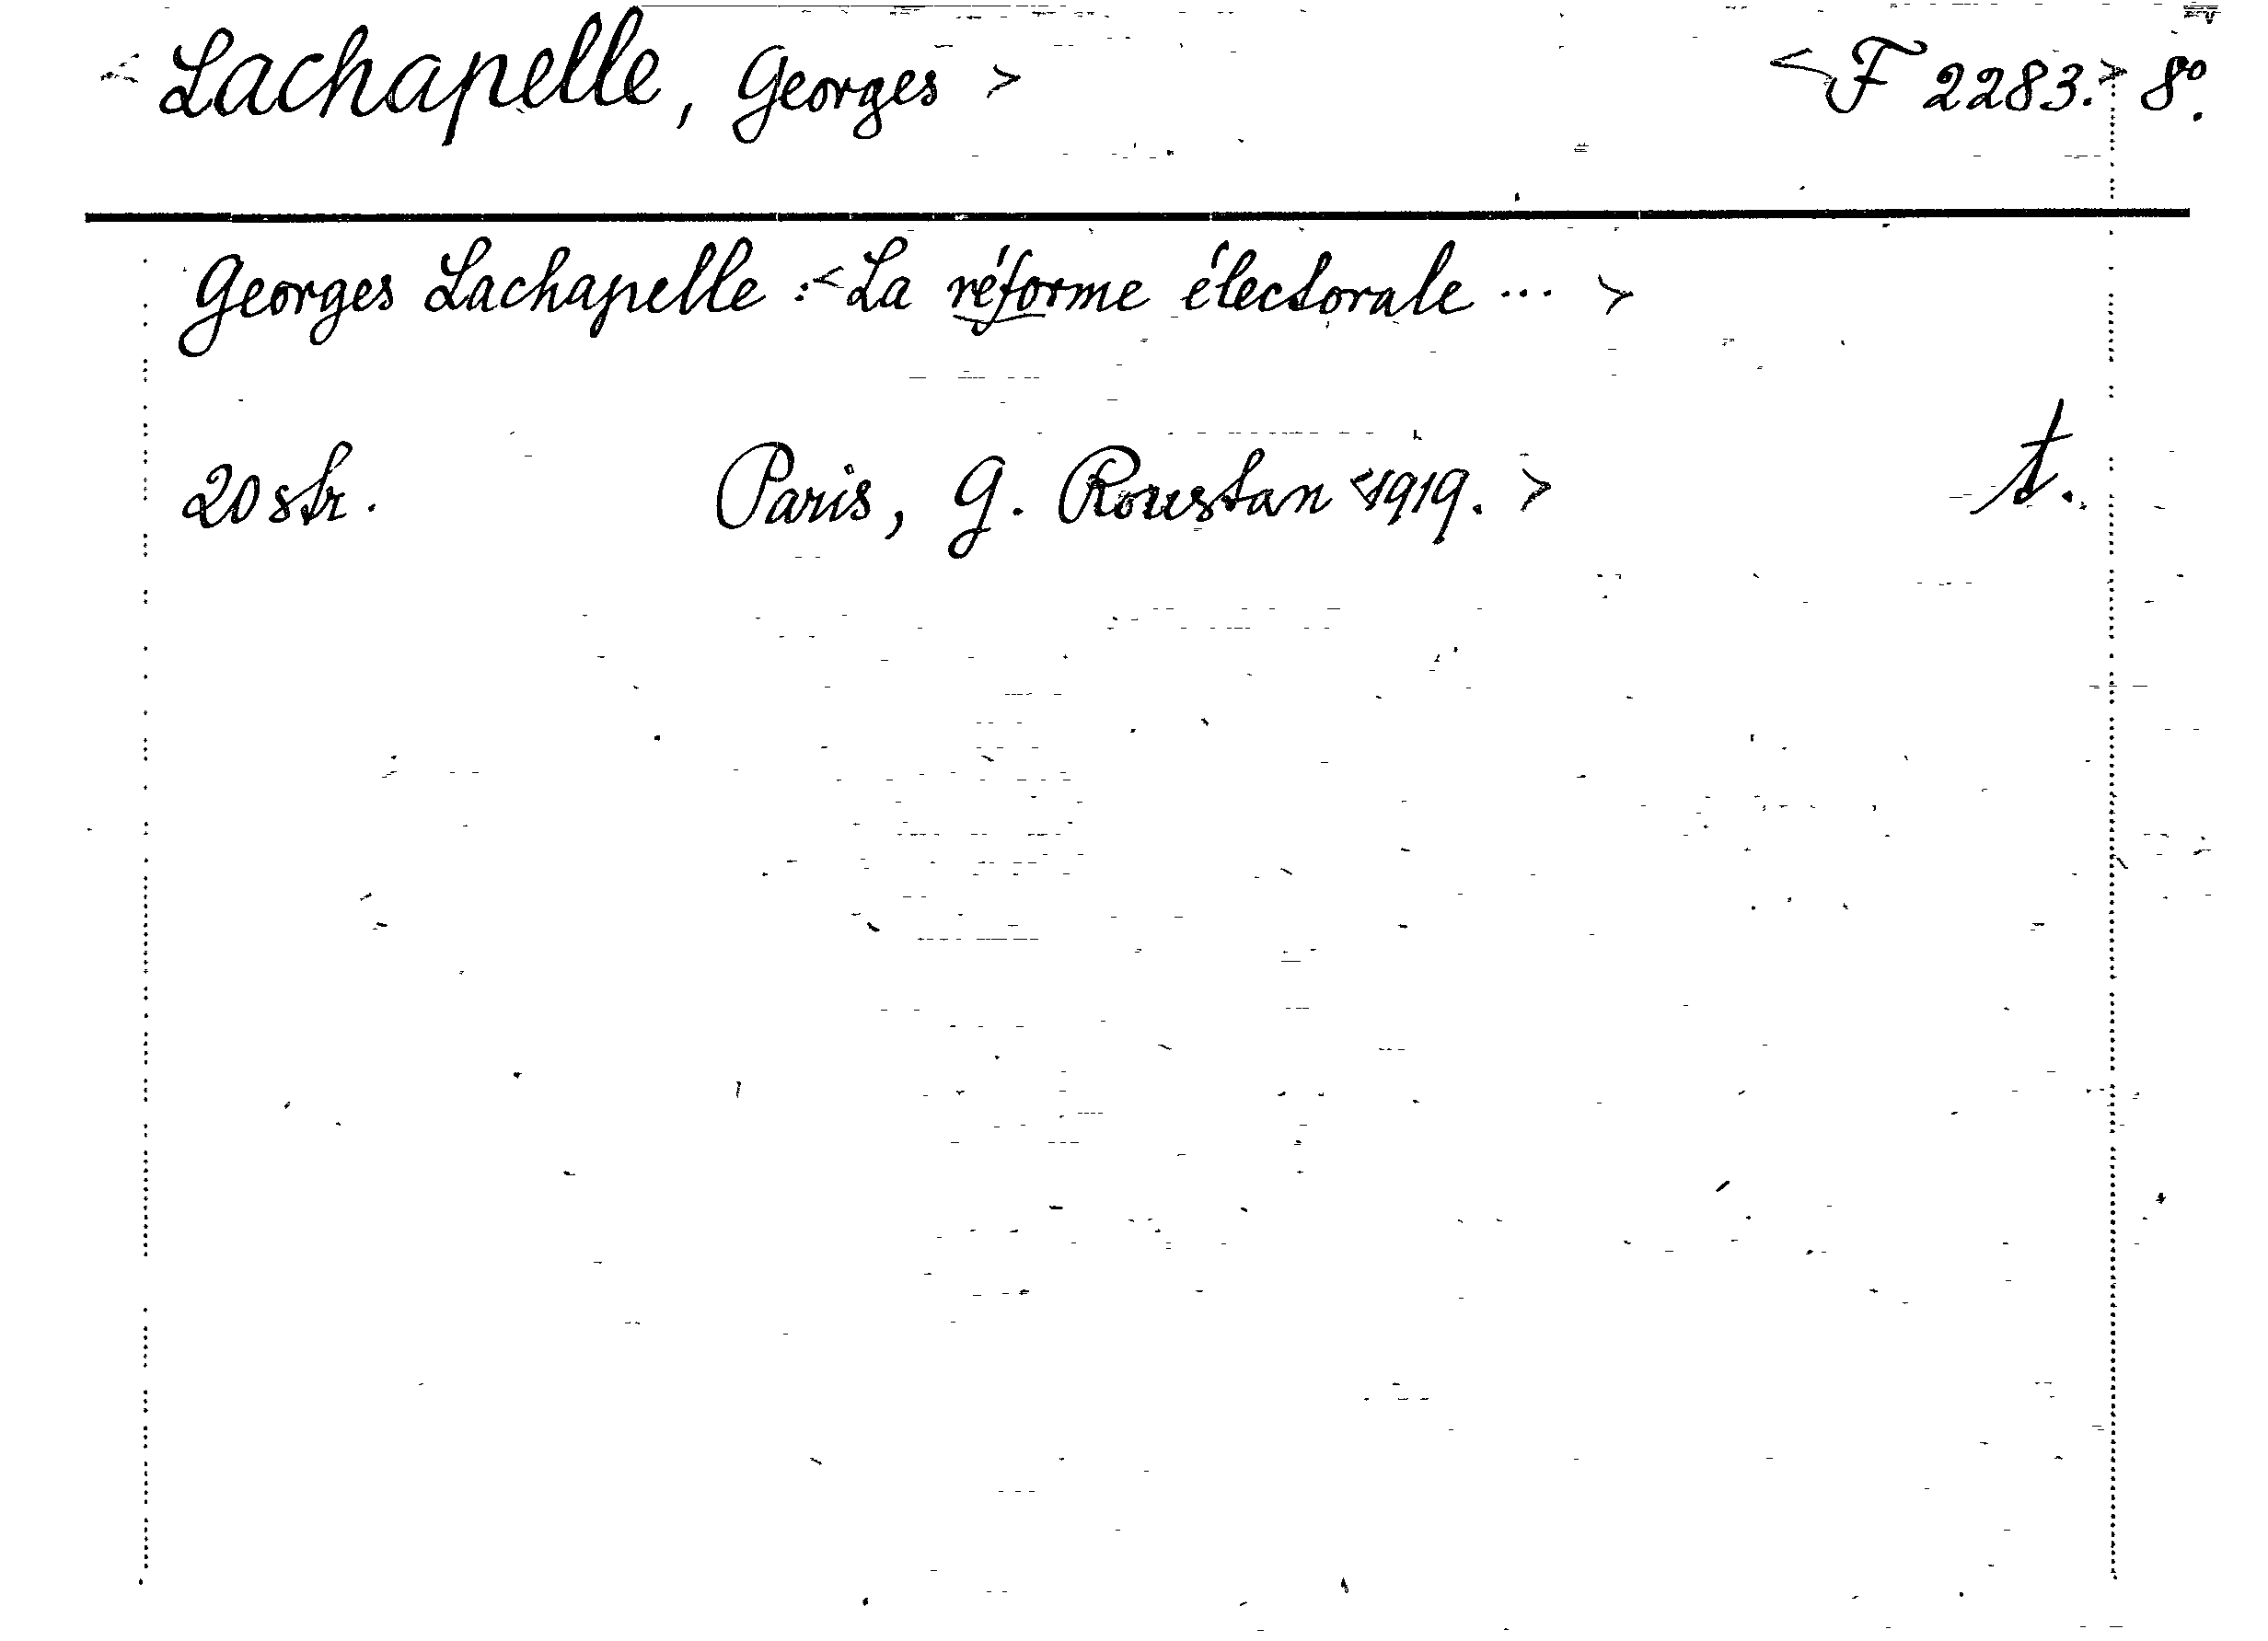 < Lachapelle, Georges > < F 2283. > 8º.
Georges Lachapelle : < La réforme électorale ... >
20 str. Paris, G. Roustan < 1919. > t.